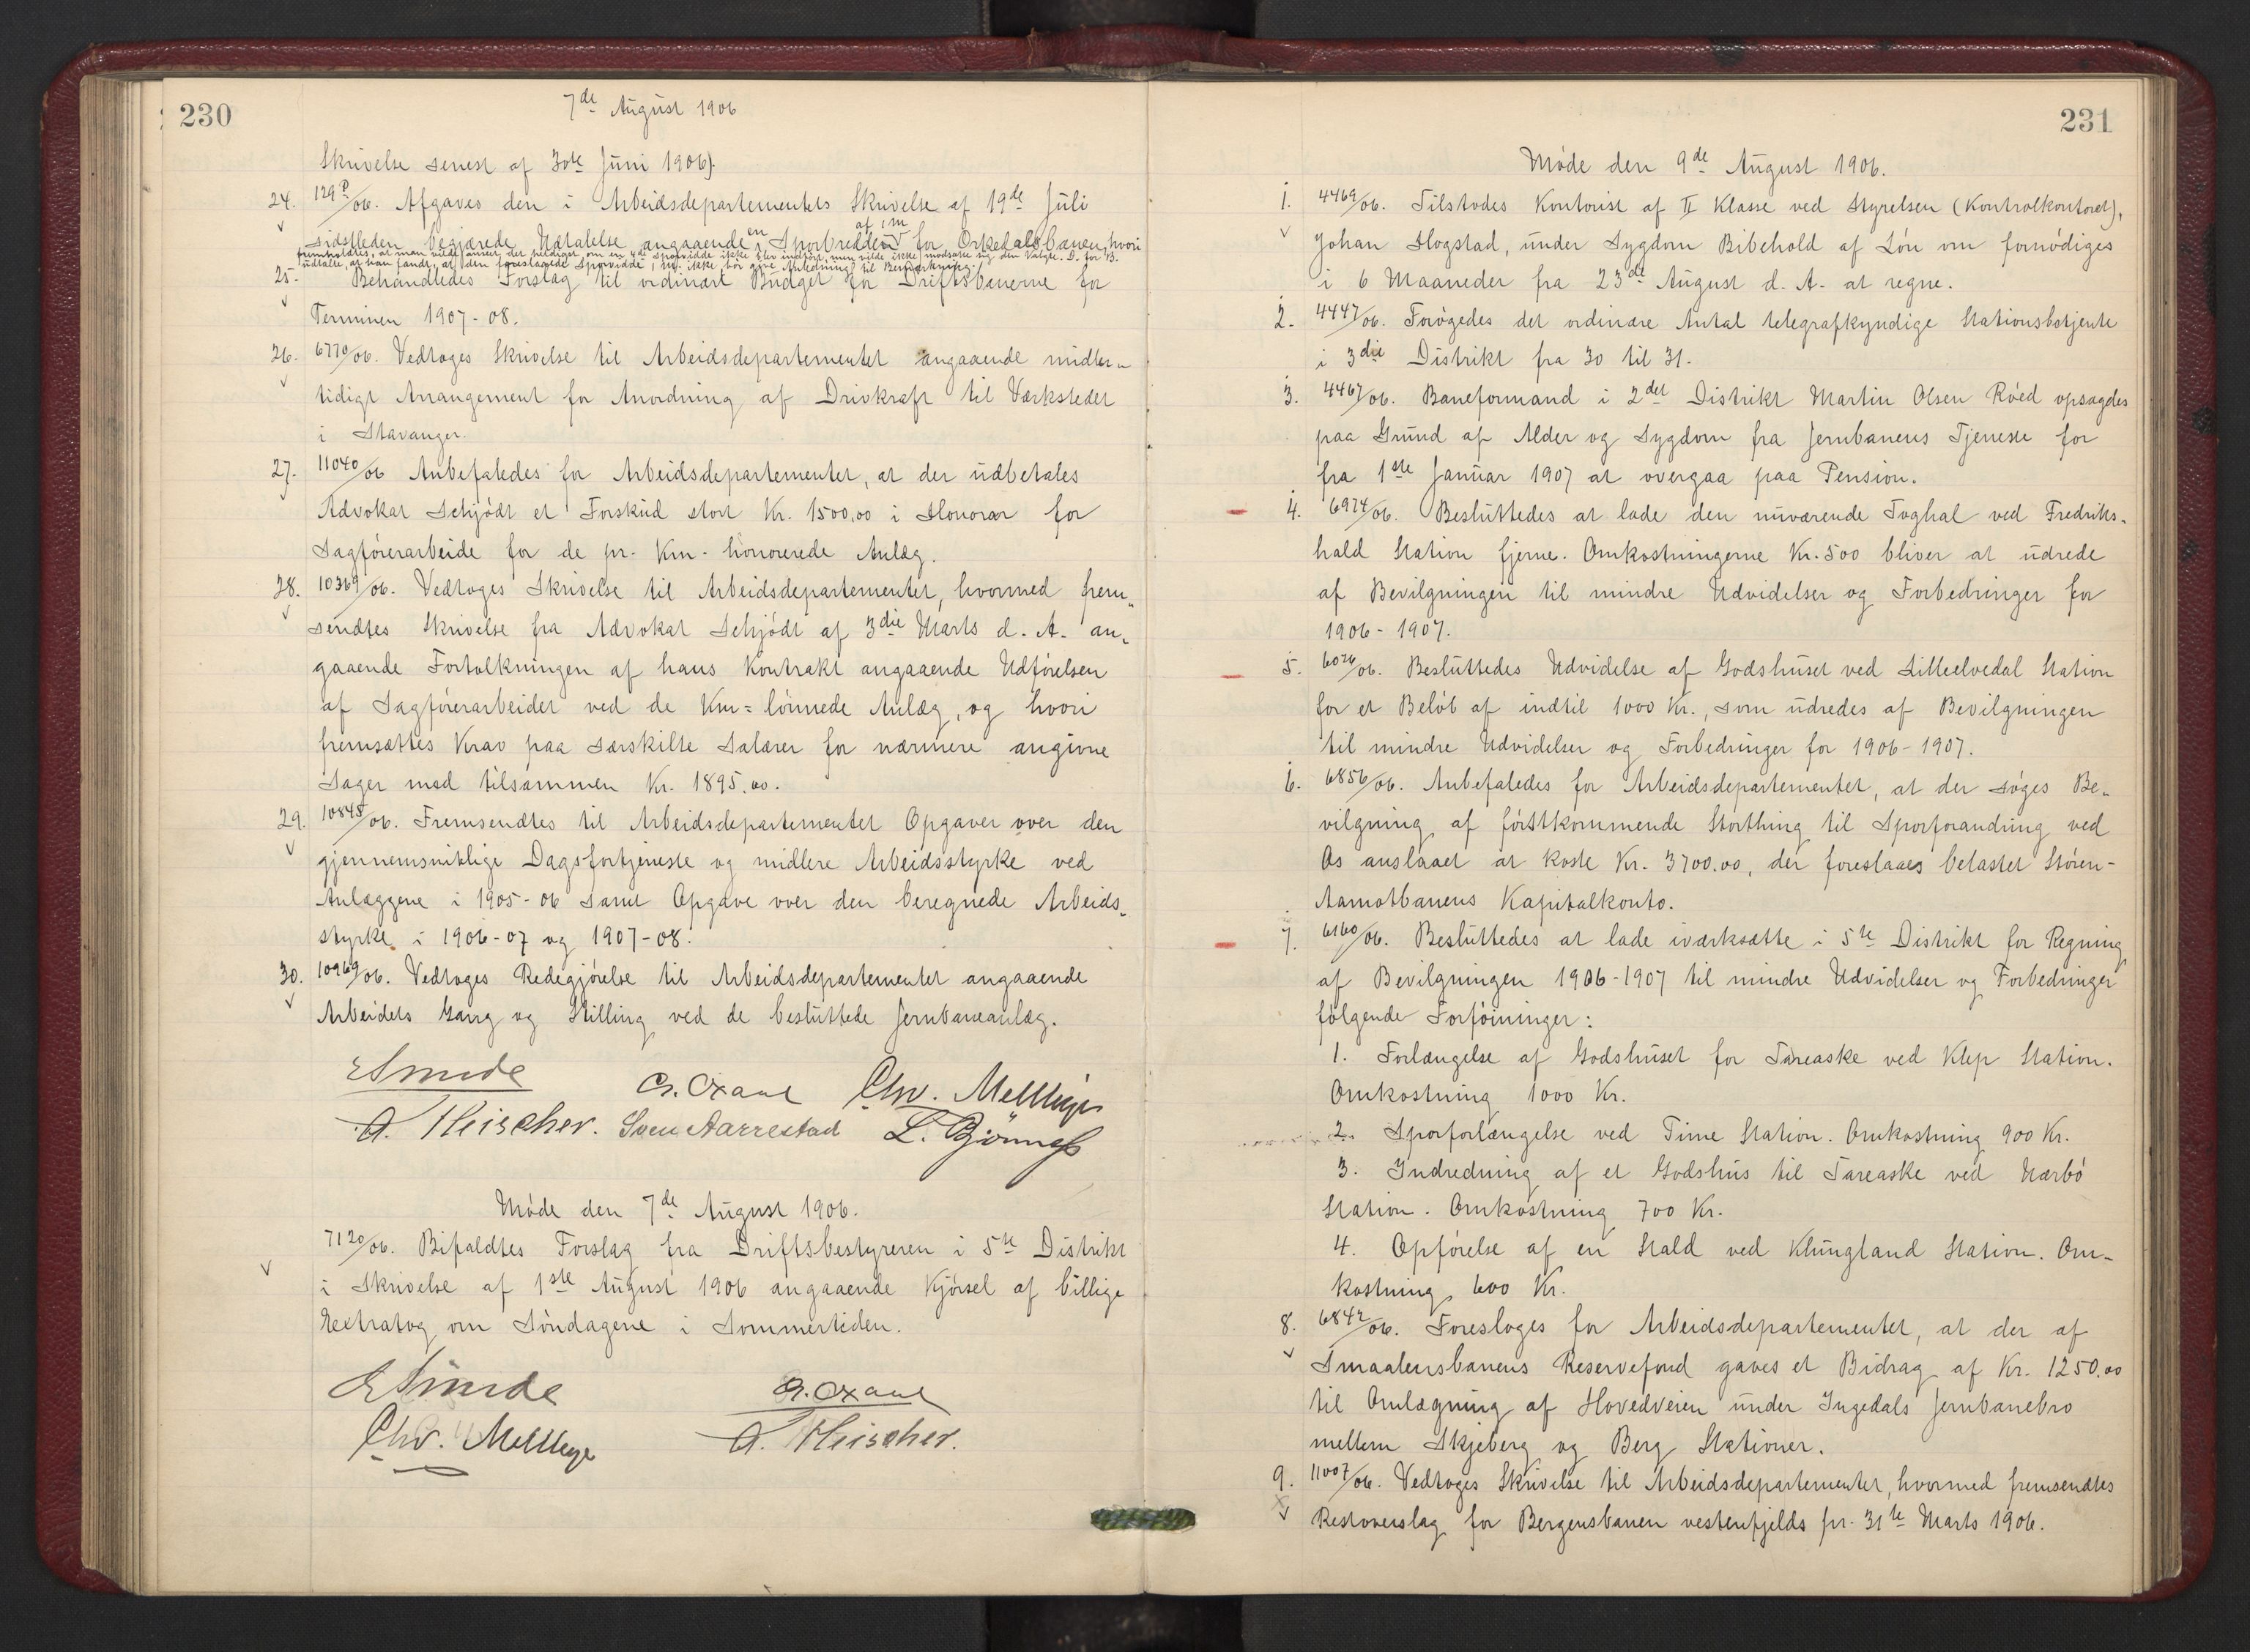 230
7de August 1906
Skrivelse senest af 30te Juni 1906).
24. 129P/06. Afgaves den i Arbeidsdepartementets Skrivelse af 19de Juli
sidstleden begjærede Udtalelse angaaende en Sporvidde af 1m for Orkedalsbanen, hvori
fremholdtes, at man vilde anset det heldigst om en 4de Sporvidde ikke blev indført, men vilde ikke modsætte sig den valgte. D. for B.
udtalte, at han fandt, at den foreslaaede Sporvidde, 1m. ikke bør give Anledning til Bemærkning.
25. Behandledes Forslag til ordinært Budget for Driftsbanerne for
Terminen 1907-08.
26. 6770/06. Vedtoges Skrivelse til Arbeidsdepartementet angaaende midler-
tidigt Arrangement for Anordning af Drivkraft til Værkstedet
i Stavanger.
27. 11040/06 Anbefaledes for Arbeidsdepartementet, at der udbetales
Advokat Schjødt et Forskud stort Kr. 1500,00 i Honorar for
Sagførerarbeide for de pr. Km- honorerede Anlæg.
28. 10369/06. Vedtoges Skrivelse til Arbeidsdepartementet, hvormed frem-
sendtes Skrivelse fra Advokat Schjødt af 3die Marts d. A. an-
gaaende Fortolkningen af hans Kontrakt angaaende Udførelsen
af Sagførerarbeidet ved de Km=lønnede Anlæg, og hvori
fremsættes Krav paa særskilte Salærer for nærmere angivne
Sager med tilsammen Kr. 1895,00.
29. 10845/06. Fremsendtes til Arbeidsdepartementet Opgaver over den
gjennemsnitlige Dagsfortjeneste og midlere Arbeidsstyrke ved
Anlæggene i 1905-06 samt Opgave over den beregnede Arbeids-
styrke i 1906-07 og 1907-08.
30. 10969/06. Vedtoges Redegjørelse til Arbeidsdepartementet angaaende
Arbeidets Gang og Stilling ved de besluttede Jernbaneanlæg.
E Sunde Chr. Mellbye
A. Fleischer. Sven Aarrestad L. Bjønness
Møde den 7de August 1906.
7120/06. Bifaldtes Forslag fra Driftsbestyreren i 5te Distrikt
i Skrivelse af 1ste August 1906 angaaende Kjørsel af billige
Extratog om Søndagene i Sommertiden.
E Sunde
Chr. Mellbye A. Fleischer.
231
Møde den 9de August 1906.
1. 4469/06. Tilstodes Kontorist af II Klasse ved Styrelsen (Kontrolkontoret),
Johan Hogstad, under Sygdom Bibehold af Løn om fornødiges
i 6 Maaneder fra 23de August d. A. at regne.
2. 4447/06. Forøgedes det ordinære Antal telegrafkyndige Stationsbetjente
i 3die Distrikt fra 30 til 31.
3. 4467/06. Baneformand i 2det Distrikt Martin Olsen Røed opsagdes
paa Grund af Alder og Sygdom fra Jernbanens Tjeneste for
fra 1ste Januar 1907 at overgaa paa Pension.
4. 6974/06. Besluttedes at lade den nuværende Toghal ved Fredriks-
hald Station fjerne. Omkostningerne Kr. 500 bliver at udrede
af Bevilgningen til mindre Udvidelser og Forbedringer for
1906-1907.
5. 6026/06. Besluttedes Udvidelse af Godshuset ved Lilleelvedal Station
for et Beløb af indtil 1000 Kr., som udredes af Bevilgningen
til mindre Udvidelser og Forbedringer for 1906-1907.
6. 6856/06. Anbefaledes for Arbeidsdepartementet, at der søges Be-
vilgning af førstkommende Storthing til Sporforandring ved
Os anslaaet at koste Kr. 3700.00, der foreslaaes belastet Støren-
Aamotbanens Kapitalkonto.
7. 6160/06. Besluttedes at lade iværksætte i 5te Distrikt for Regning
af Bevilgningen 1906-1907 til mindre Udvidelser og Forbedringer
følgende Forføininger:
1. Forlængelse af Godshuset for Tareaske ved Klep Station.
Omkostning 1000 Kr.
2. Sporforlængelse ved Time Station. Omkostning 900 Kr.
3. Indredning af et Godshus til Tareaske ved Nærbø
Station. Omkostning 700 Kr.
4. Opførelse af en Stald ved Klungland Station. Om-
kostning 600 Kr.
8. 6842/06. Foresloges for Arbeidsdepartementet, at der af
Smaalensbanens Reservefond gaves et Bidrag af Kr. 1250.00
til Omlægning af Hovedveien under Ingedals Jernbanebro
mellem Skjeberg og Berg Stationer.
9. 11007/06. Vedtoges Skrivelse til Arbeidsdepartementet, hvormed fremsendtes
Restoverslag for Bergensbanen vestenfjelds pr. 31te Marts 1906.